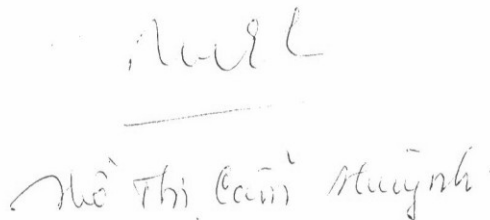 Hồ Thị Cẩm Huỳnh